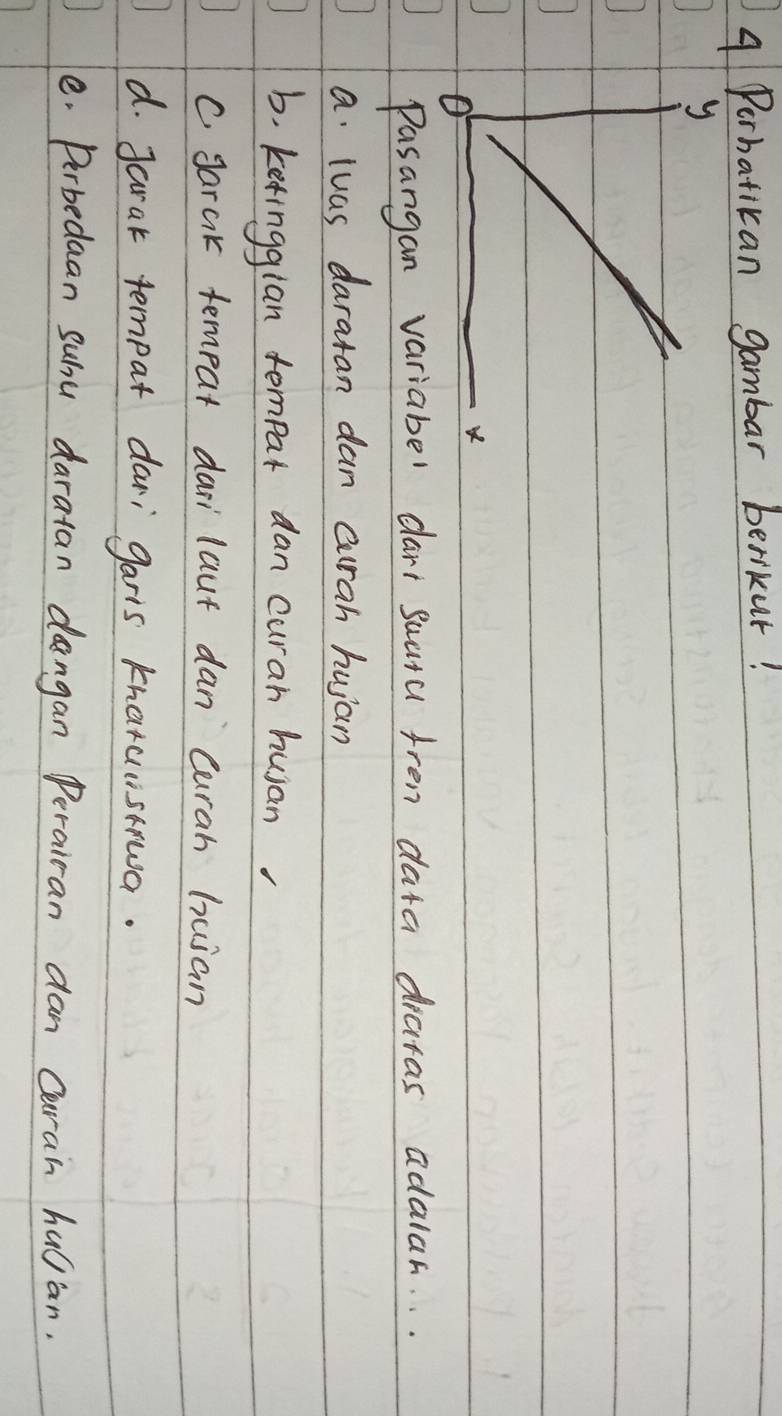 4 Perhatikan gambar berikut!
y
0
x
Pasangan variabel dari suatu tren data diatas adalah...
a. luas daratan dan curah hujan
b. ketinggian tempat dan curah hujan.
c. Jarak tempat dari laut dan curah hujan
d. Jarak tempat dari garis khatulistiwa.
e. Perbedaan suhu daratan dangan Perairan dan Curah hujan.